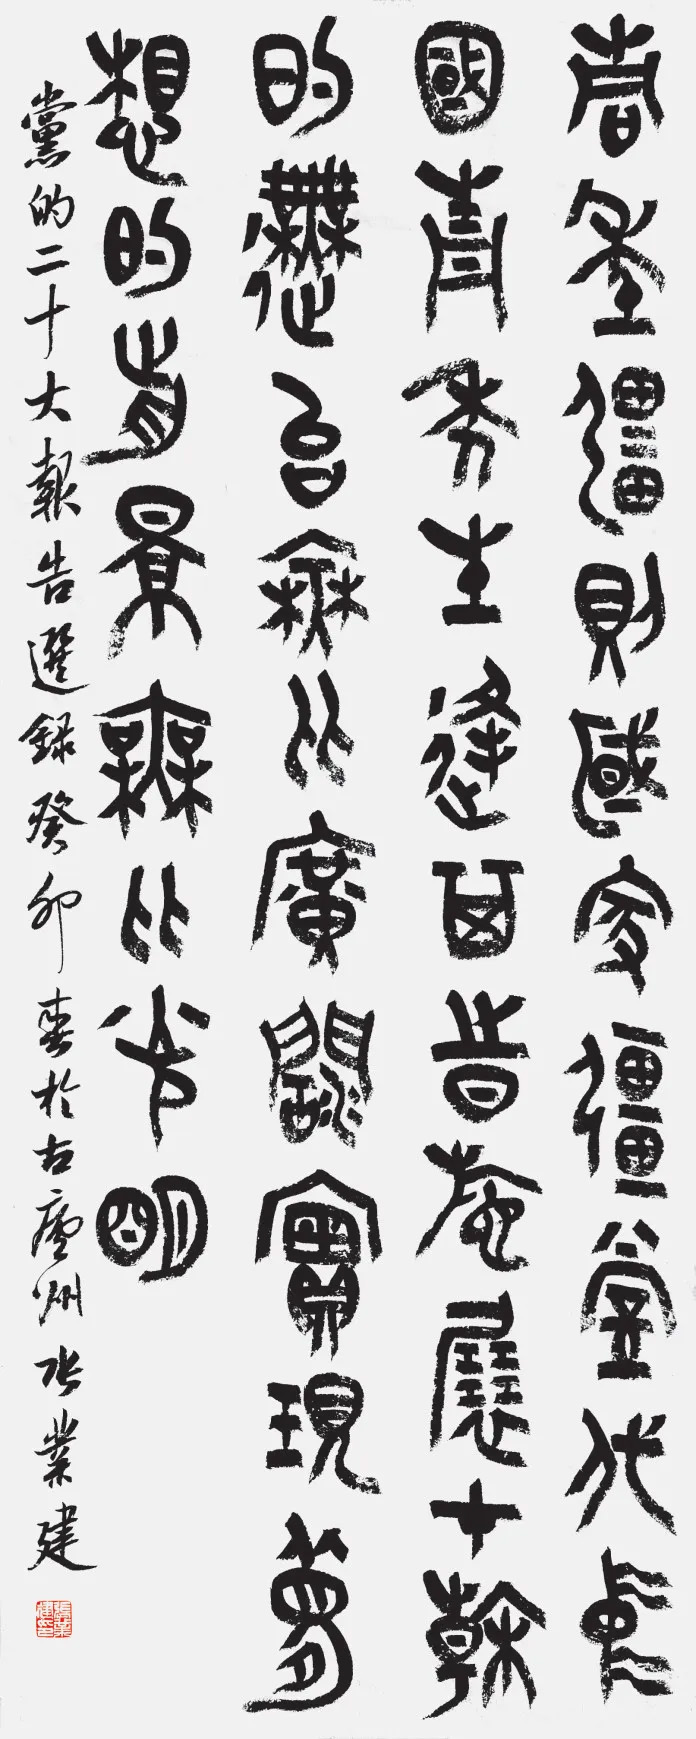 青年彊則國家彊當代中
國青年生逢其時施展才幹
的舞台無比廣闊實現夢
想的前景無比光明
黨的二十大報告選錄癸卯春於古廬州張業建